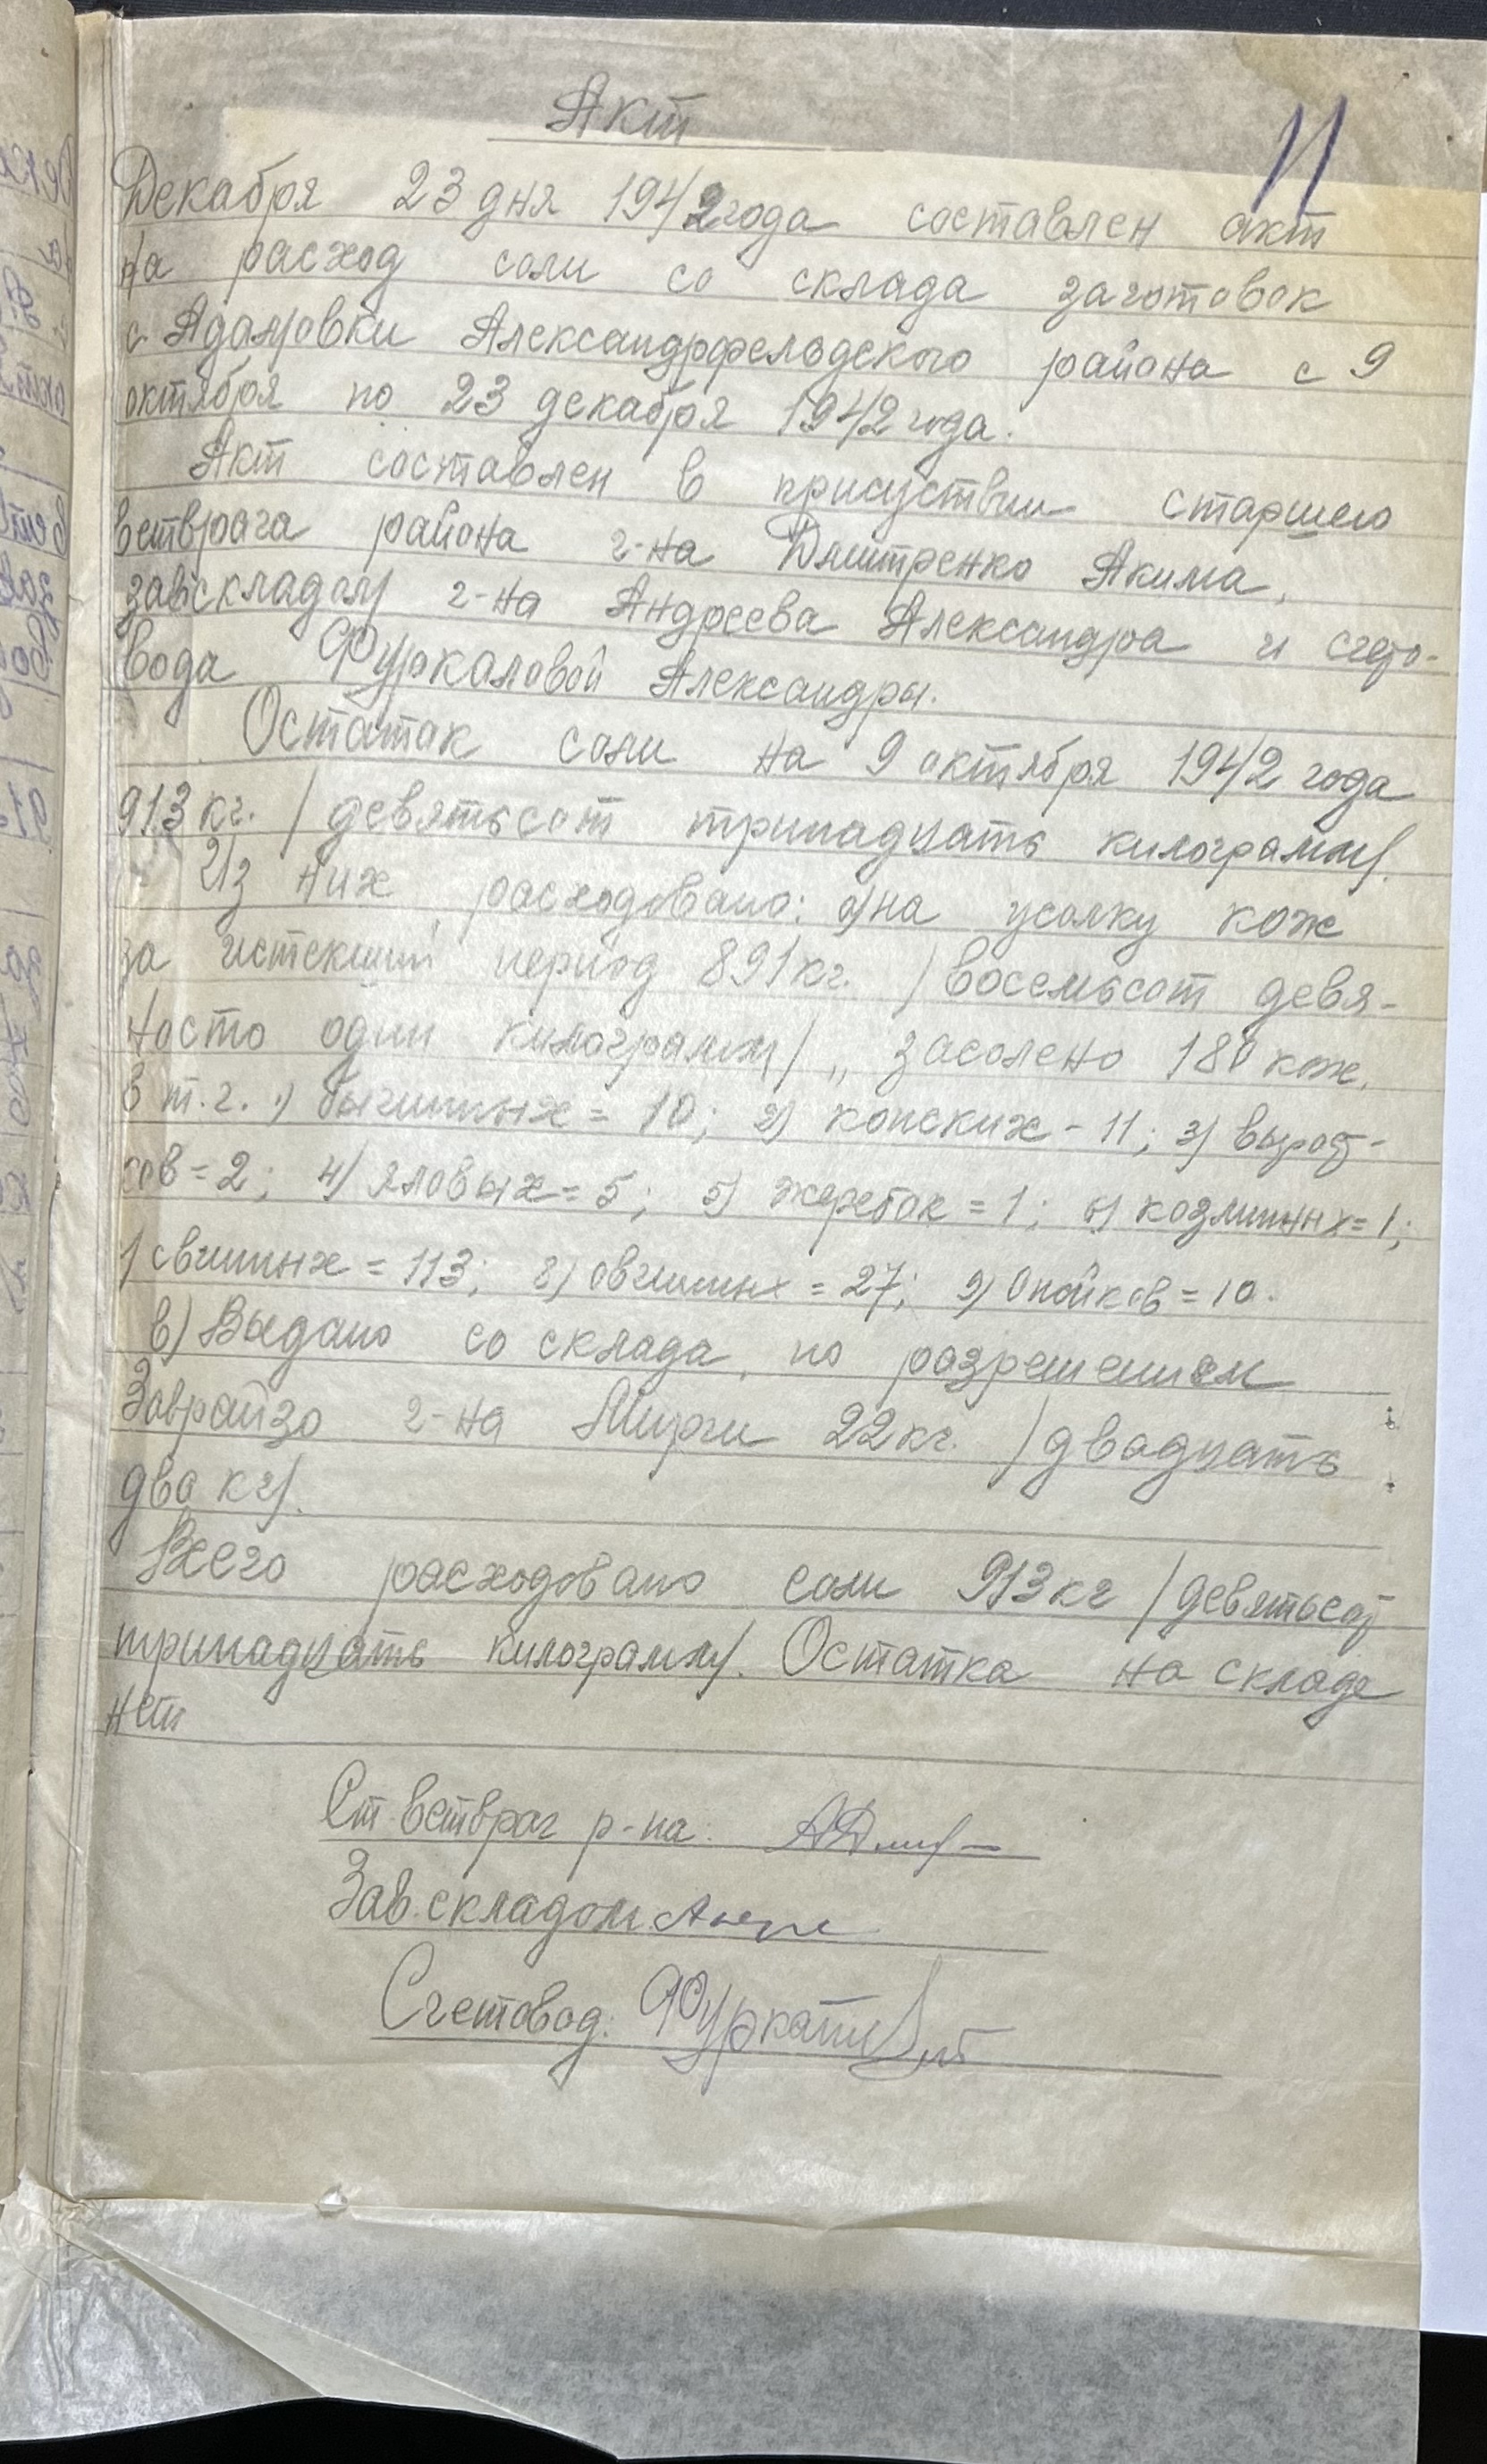 Акт
11
Декабря 23 дня 1942 года составлен акт
на расход соли со склада заготовок
с Адамовки Александрфельдского района с 9
октября по 23 декабря 1942 года.
Акт составлен в присуствии старшего
ветврача района г-на Дмитренко Акима,
завскладом г-на Андреева Александра и счето-
вода Фуркаловой Александры.
Остаток соли на 9 октября 1942 года
913 кг. /девятьсот тринадцать килограмм/.
Из них расходовано: а) на усолку кож
за истекший период 891 кг. /восемьсот девя-
носто один килограмм/ „ засолено 180 кож.
в т.ч. 1) бычиных = 10; 2) конских - 11; 3) вырост-
ков = 2; 4) яловых = 5; 5) жеребок = 1; 6) козлиных = 1;
) свиных = 113; 8) овчиных = 27; 9) Опойков = 10.
в) Выдано со склада, по разрешением
Заврайзо г-на 22 кг. /двадцать
два кг/.
Всего расходовано соли 913 кг /девятьсот
тринадцать килограмм/. Остатка на складе
нет
Ст. ветврач р-на:
Зав. складом
Счетовод: